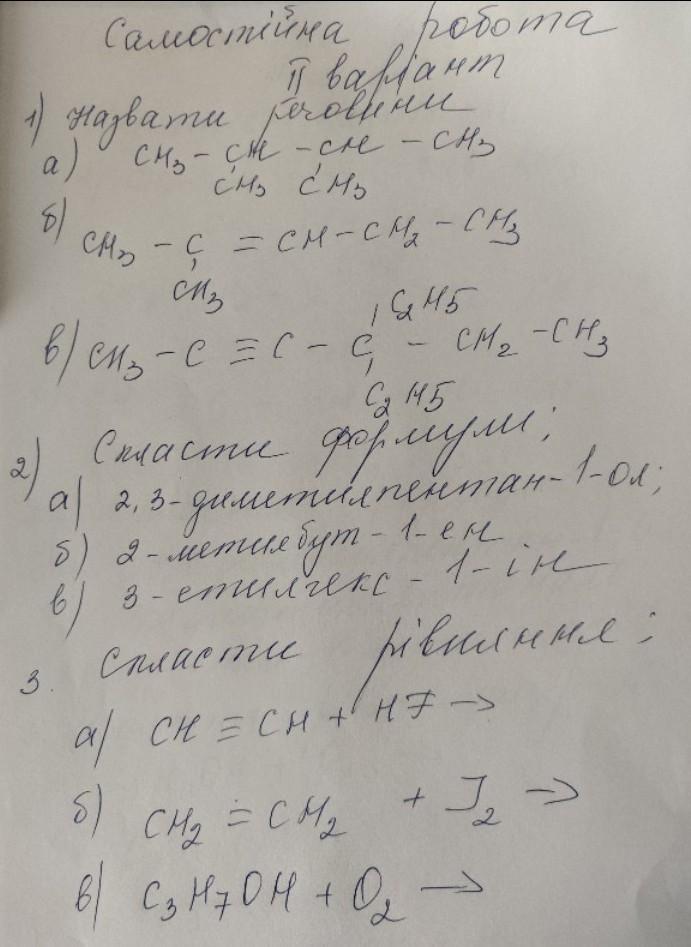 Самостійна робота
II варіант
1) Назвати речовини
а) CH3 - CH - CH - CH3
CH3 CH3
б) CH3 - C = CH - CH2 - CH3
CH3
C2H5
в) CH3 - C ≡ C - C - CH2 - CH3
C2H5
2) Скласти формули;
а) 2,3-диметилпентан-1-ол;
б) 2-метилбут-1-ен
в) 3-етилгекс-1-ін
3. Скласти рівняння:
а) CH ≡ CH + HF →
б) CH2 = CH2 + J2 →
в) C3H7OH + O2 →